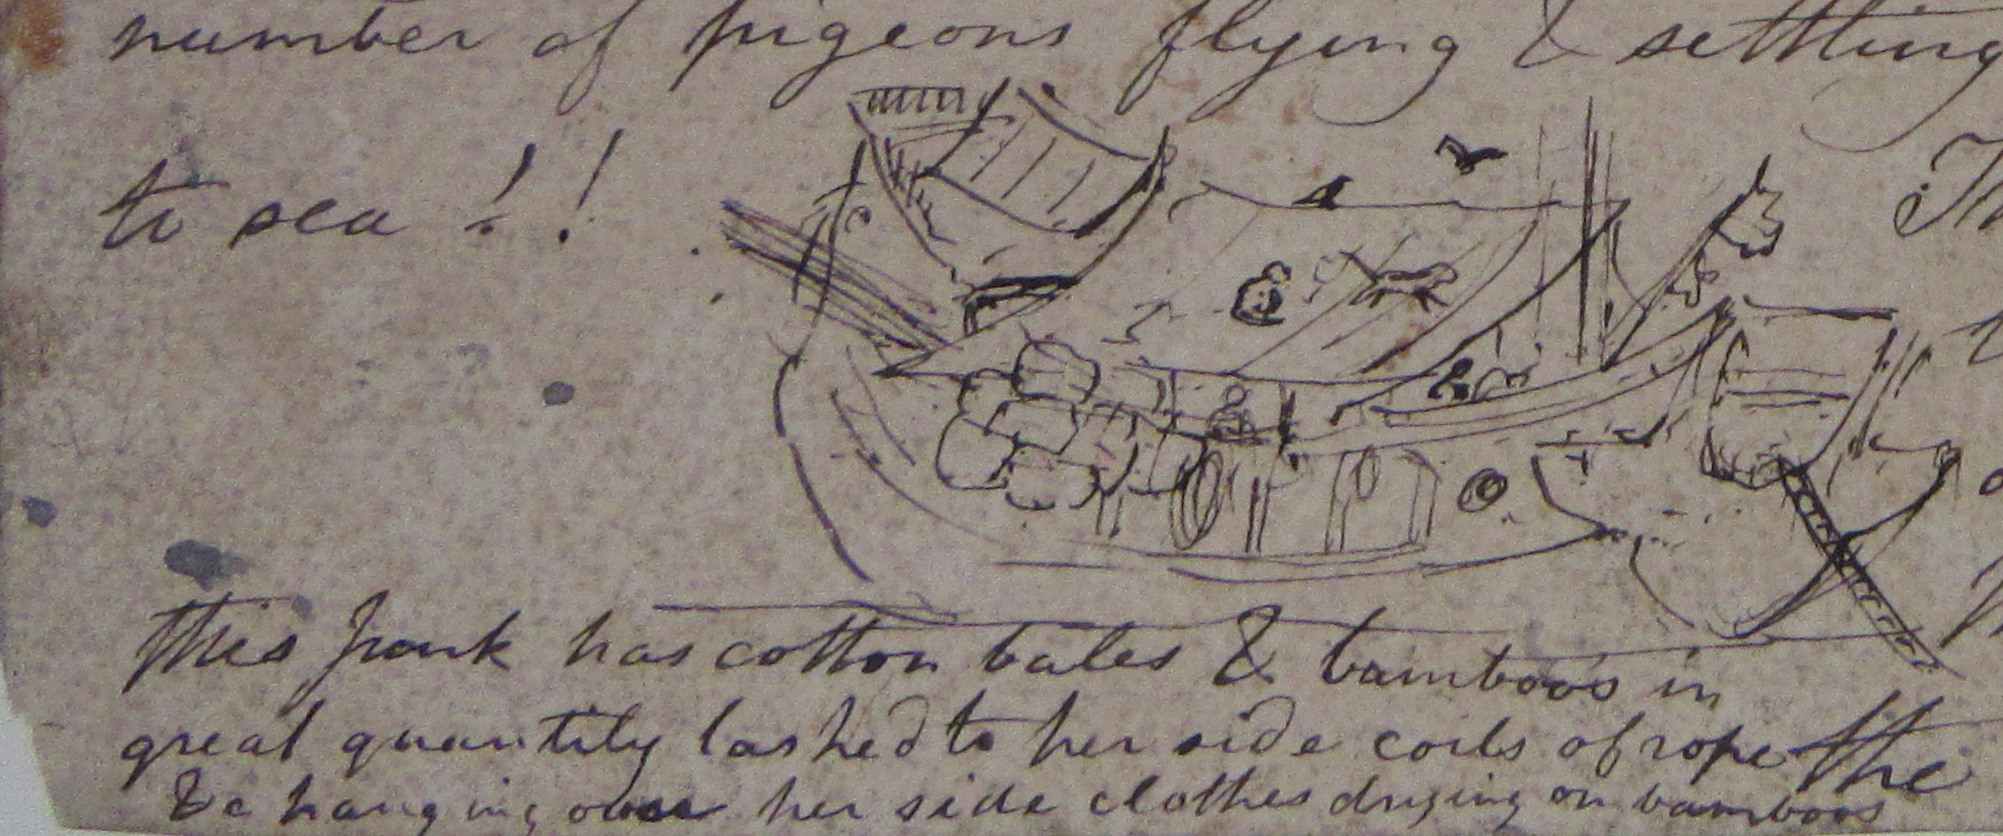 number of pigeons flying & settling
to sea !!
This Junk has cotton bales & bamboos in
great quantity lashed to her side coils of rope the
&c hanging over her side clothes drying on bamboos